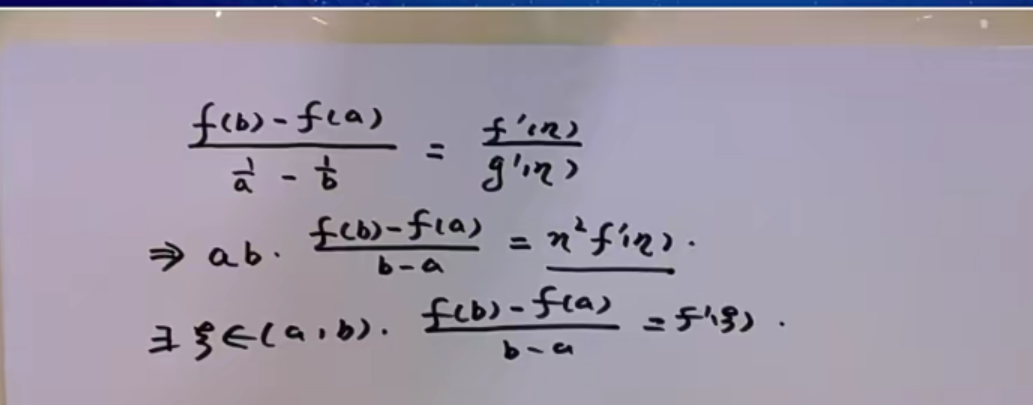 (f(b)-f(a))/(1/a - 1/b) = f'(η)/g'(η)
⇒ ab· (f(b)-f(a))/(b-a) = η²f'(η).
∃ ξ∈(a,b). (f(b)-f(a))/(b-a) = f'(ξ).